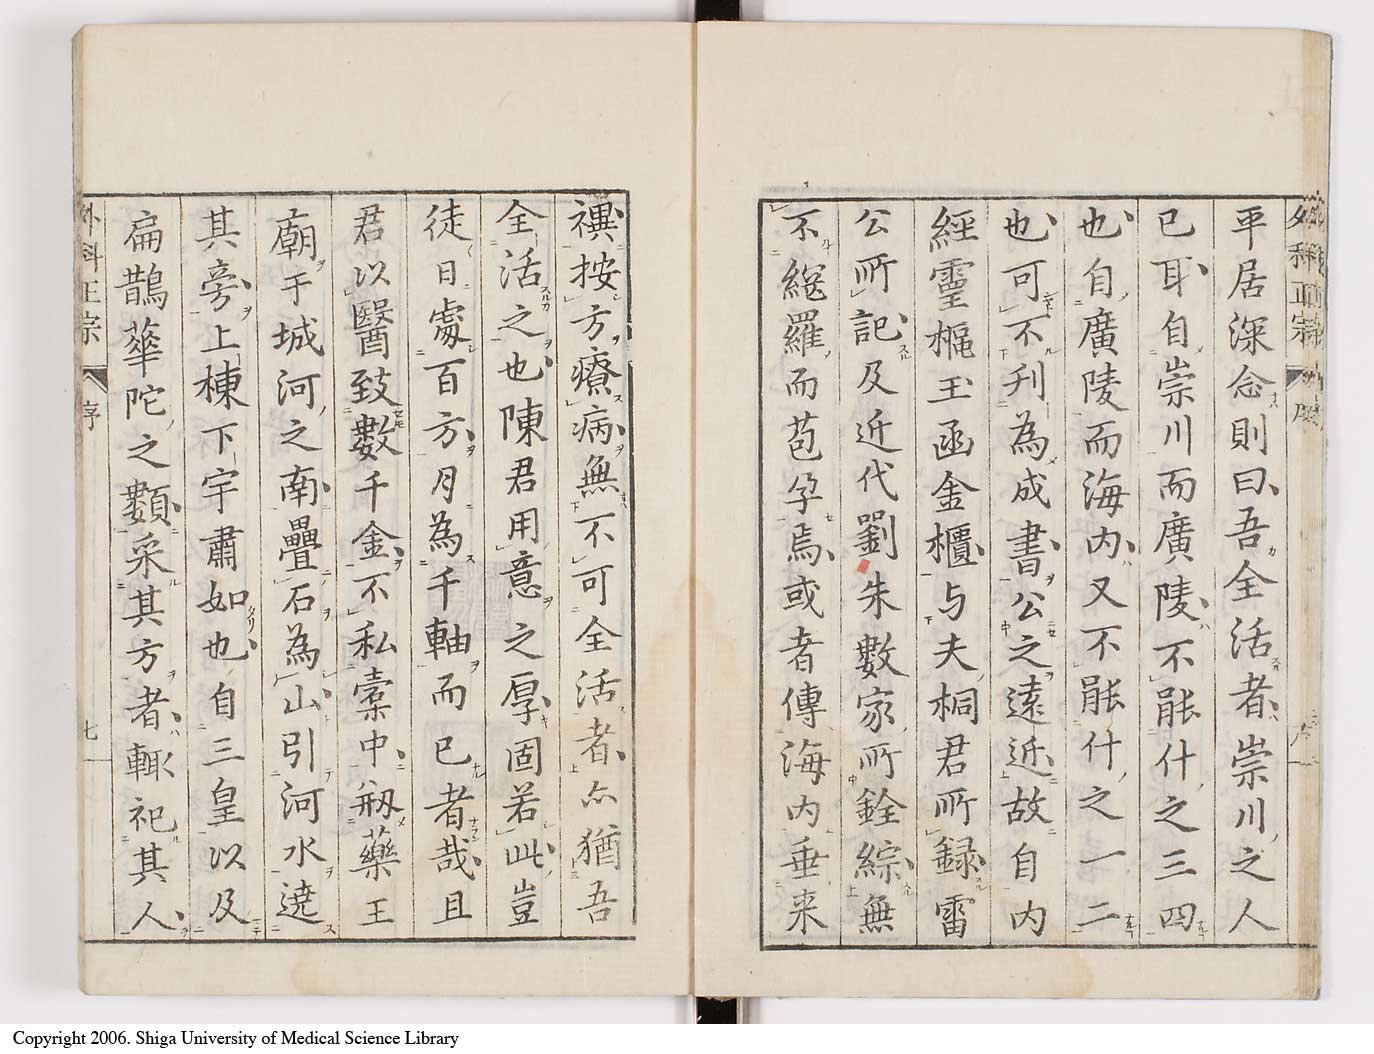 平居深念則曰吾全活者崇川之人
已耳自崇川而廣陵不能什之三四
也自廣陵而海内又不能什之一二
也可不刋為成書公之遠近故自内
經靈樞玉函金櫃与夫桐君所録雷
公所記及近代劉朱數家所銓綜無
不綛羅而苞孕焉或者傳海内垂来
禩按方療病無不可全活者亦猶吾
全活之也陳君用意之厚固若此豈
徒日處百方月為千軸而已者哉且
君以醫致數千金不私橐中剏藥王
廟于城河之南疊石為山引河水遶
其旁上棟下宇肅如也自三皇以及
扁鵲華陀之類采其方者輙祀其人
外科正宗 序 七
Copyright 2006. Shiga University of Medical Science Library